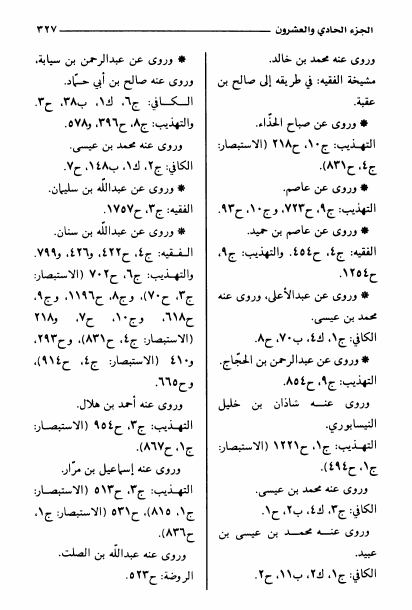 الجزء الحادي والعشرون
٣٢٧
وروى عنه محمد بن خالد.
مشيخة الفقيه: في طريقه إلى صالح بن
عقبة.
* وروى عن صباح الحذّاء.
التهذيب: ج١٠، ح٢١٨ (الاستبصار:
ج٤، ح٨٣١).
* وروى عن عاصم.
التهذيب: ج٩، ح٧٢٣، وج١٠، ح٩٣.
* وروى عن عاصم بن حميد.
الفقيه: ج٤، ح٤٥٤. والتهذيب: ج٩،
ح١٢٥٤.
* وروى عن عبدالأعلى، وروى عنه
محمد بن عيسى.
الكافي: ج١، ك٤، ب٧٠، ح٨.
* وروى عن عبدالرحمن بن الحجّاج.
التهذيب: ج٩، ح٨٥٤.
وروى عنه شاذان بن خليل
النيسابوري.
التهذيب: ج١، ح١٢٢١ (الاستبصار:
ج١، ح٤٩٤).
وروى عنه محمد بن عيسى.
الكافي: ج٣، ك٤، ب٢، ح١.
وروى عنه محمد بن عيسى بن
عبيد.
الكافي: ج١، ك٢، ب١١، ح٢.
* وروى عن عبدالرحمن بن سيابة،
وروى عنه صالح بن أبي حمّاد.
الكافي: ج٦، ك١، ب٣٨، ح٣.
والتهذيب: ج٨، ح٣٩٦، وح٥٧٨.
وروى عنه محمد بن عيسى.
الكافي: ج٢، ك١، ب١٤٨، ح٧.
* وروى عن عبداللّه بن سليمان.
الفقيه: ج٣، ح١٧٥٧.
* وروى عن عبداللّه بن سنان.
الفقيه: ج٤، ح٤٢٢، و٤٢٦، و٧٩٩.
والتهذيب: ج٦، ح٧٠٢ (الاستبصار:
ج٣، ح٧٠)، وج٨، ح١١٩٦، وج٩،
ح٦١٨، وج١٠، ح٧، و٢١٨
(الاستبصار: ج٤، ح٨٣١)، وح٢٩٣،
و٤١٠ (الاستبصار: ج٤، ح٩١٤)،
وح٦٦٥.
وروى عنه أحمد بن هلال.
التهذيب: ج٣، ح٩٥٤ (الاستبصار:
ج١، ح٨٦٧).
وروى عنه إسماعيل بن مرّار.
التهذيب: ج٣، ح٥١٣ (الاستبصار:
ج١، ٨١٥)، ح٥٣١ (الاستبصار: ج١،
ح٨٣٦).
وروى عنه عبداللّه بن الصلت.
الروضة: ح٥٢٣.